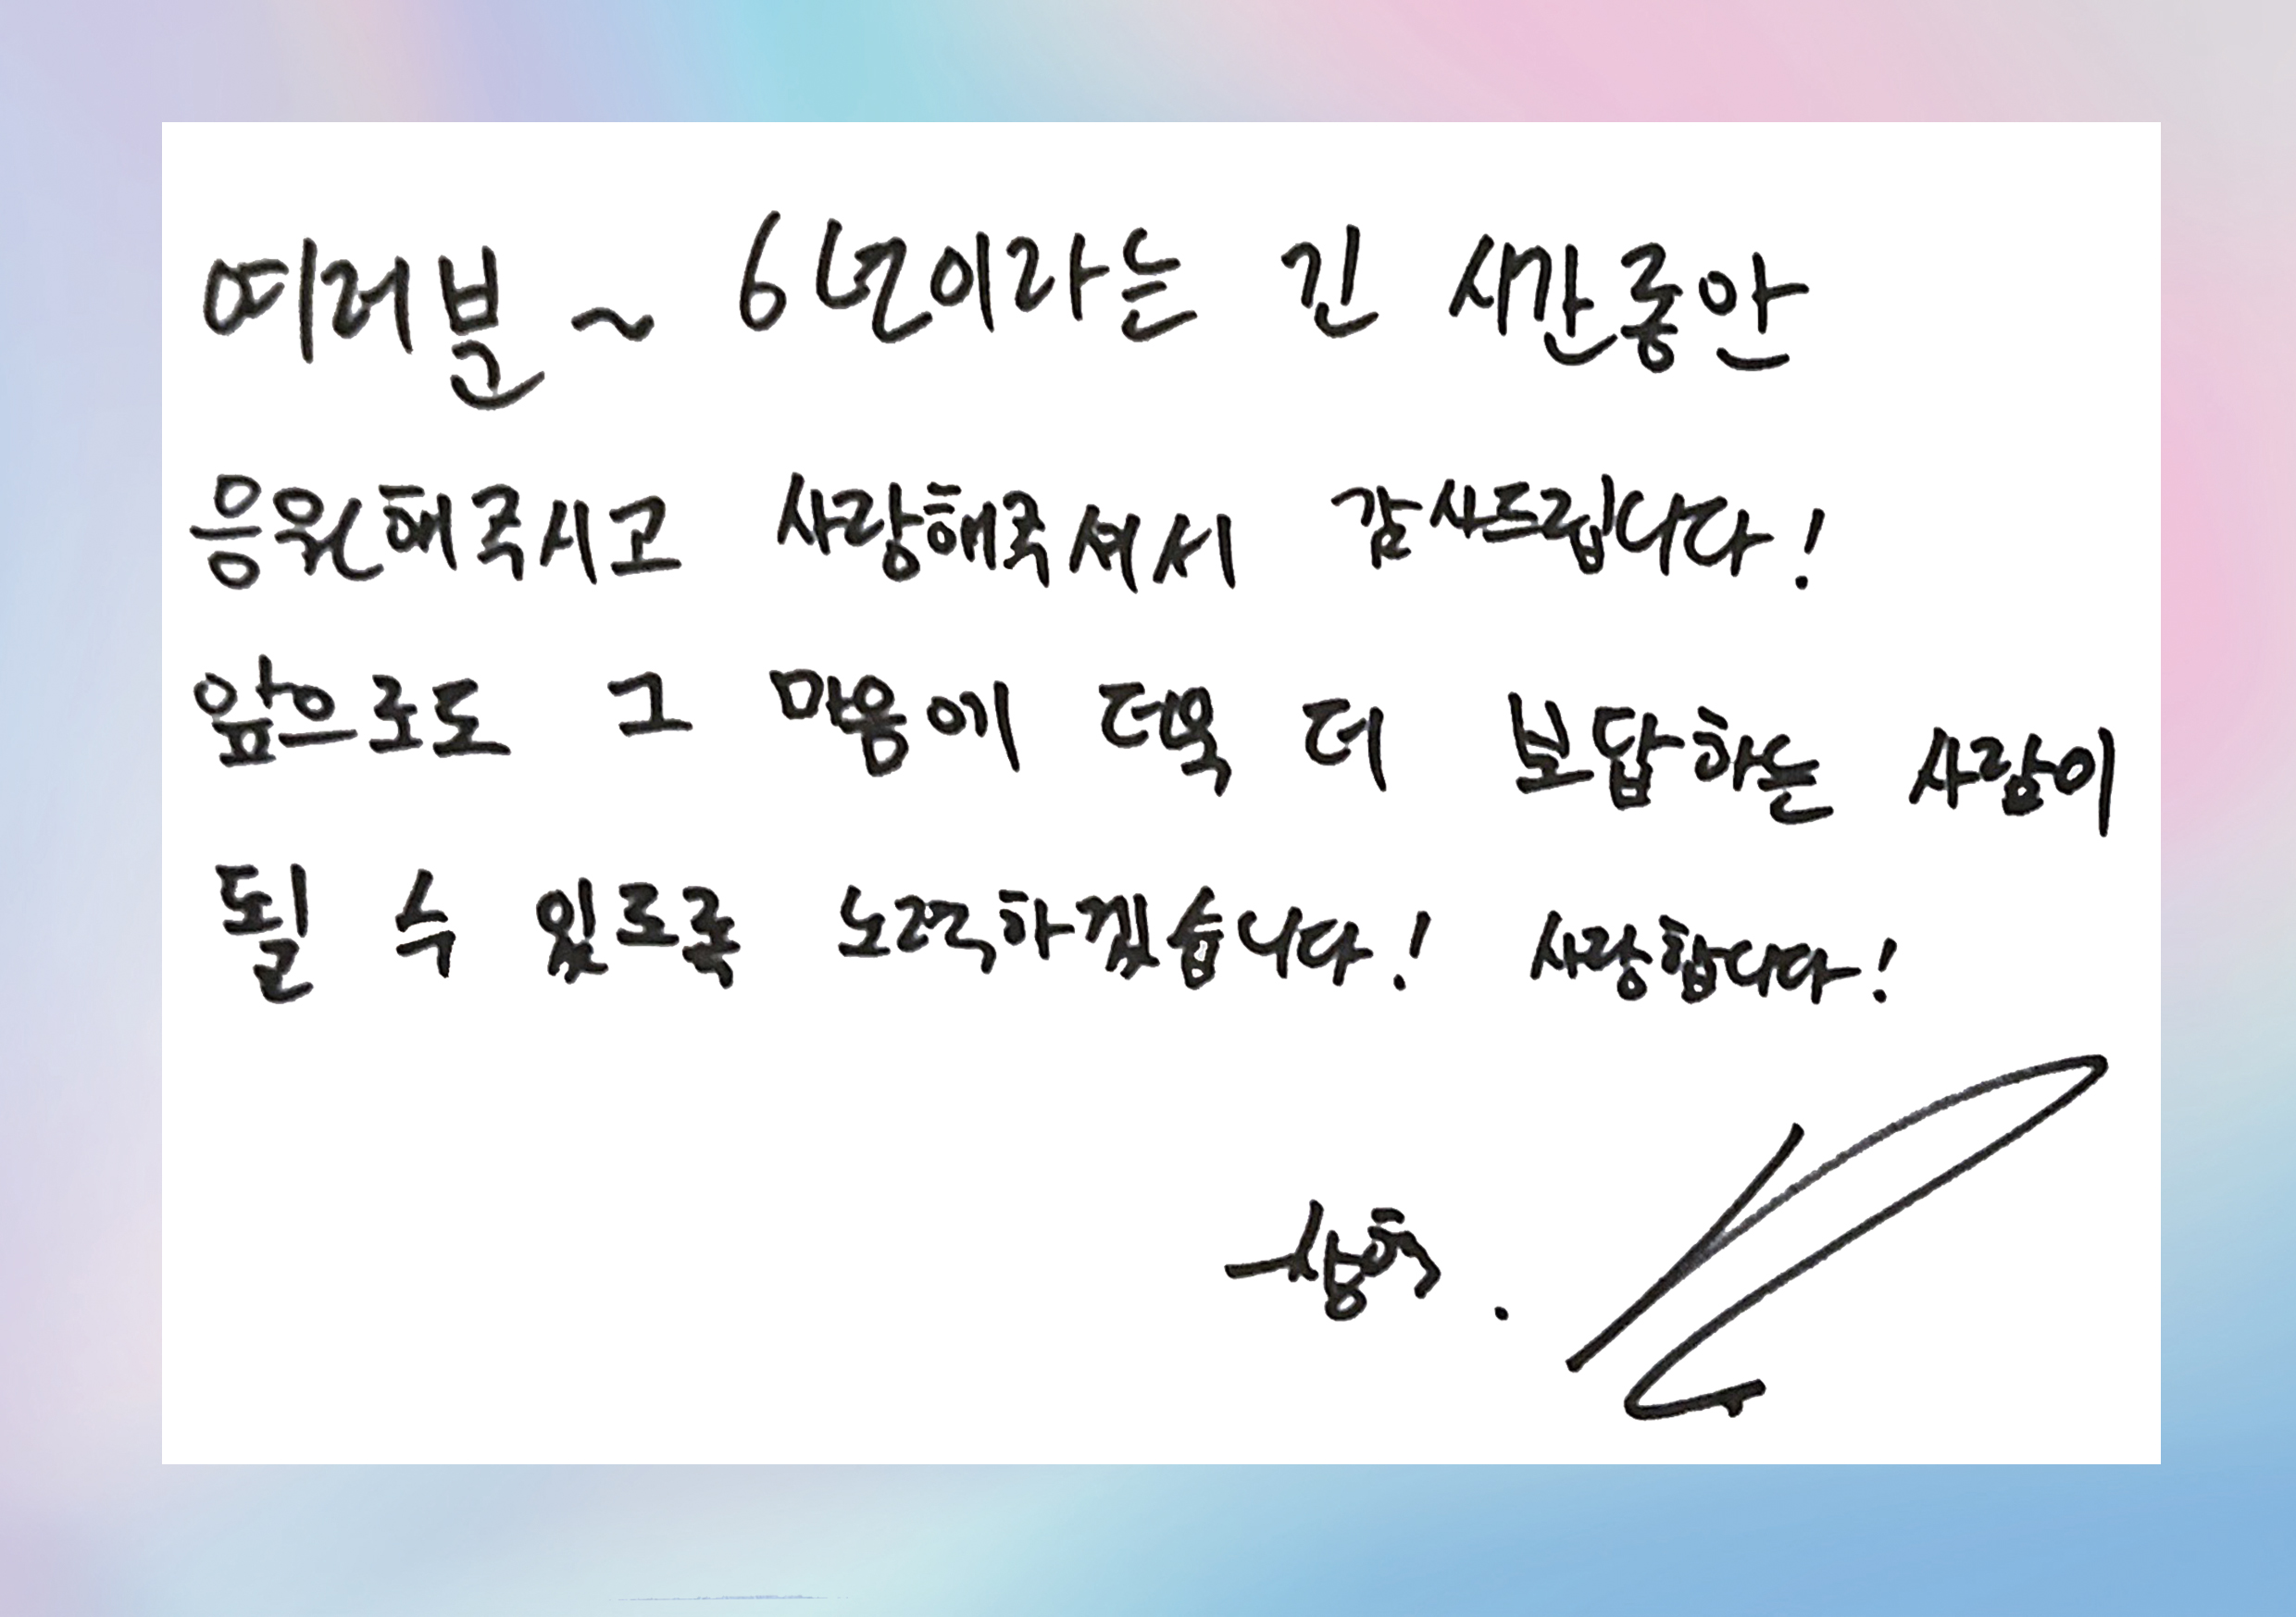 여러분~ 6년이라는 긴 시간동안
응원해주시고 사랑해주셔서 감사드립니다!
앞으로도 그 마음에 더욱 더 보답하는 사람이
될 수 있도록 노력하겠습니다! 사랑합니다!
-상혁.